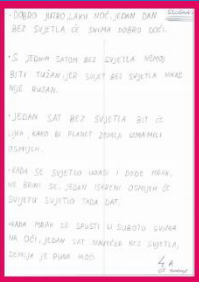 - DOBRO JUTRO, LAKU NOĆ, JEDAN DAN
BEZ SVJETLA ĆE SVIMA DOBRO DOĆI.
- S JEDNIM SATOM BEZ SVJETLA NEMOJ
BITI TUŽAN, JER SVIJET BEZ SVJETLA NIKAD
NIJE RUŽAN.
- JEDAN SAT BEZ SVJETLA BIT ĆE
LJEK KAKO BI PLANET ZEMLJA IZMAMILI
OSMIJEH.
- KADA SE SVJETLO UGASI I DOĐE MRAK,
NE BRINI SE, JEDAN ISKRENI OSMIJEH ĆE
SVIJETU SVJETLO TADA DAT.
- KADA MRAK SE SPUSTI U SUBOTU SVIMA
NA OČI, JEDAN SAT NAVEČER BEZ SVJETLA,
ZEMLJA JE PUNA MOĆI.
4.